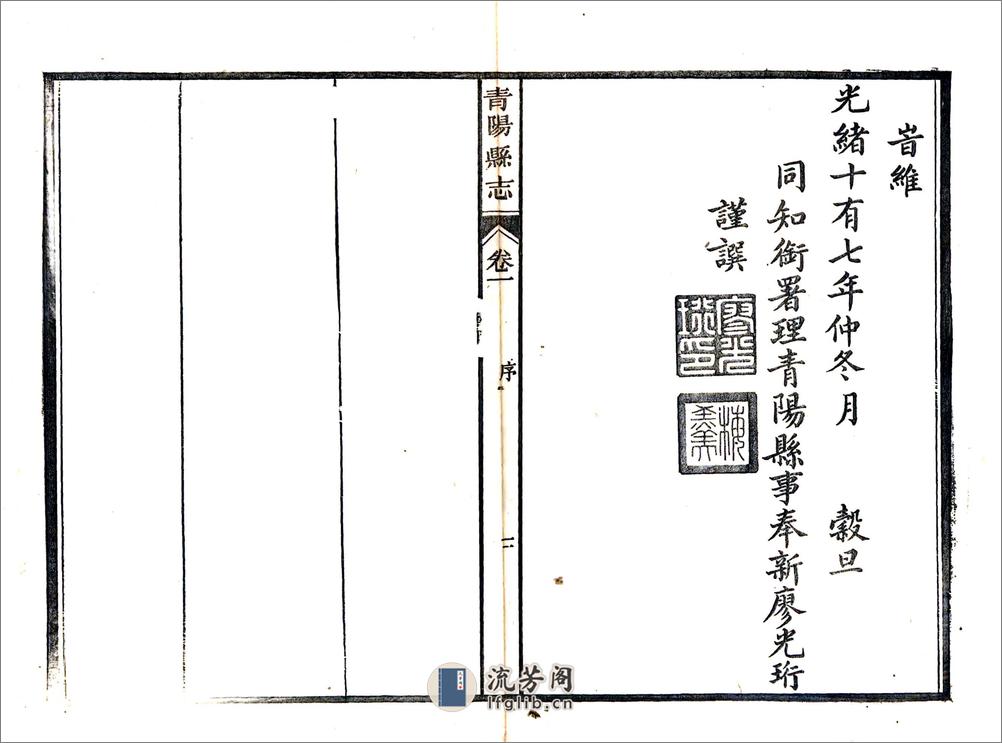 旹維
光緒十有七年仲冬月　穀旦
同知銜署理青陽縣事奉新廖光珩
謹譔
廖光珩印
青陽縣志
卷一
序
三
流芳阁
lfglib.cn